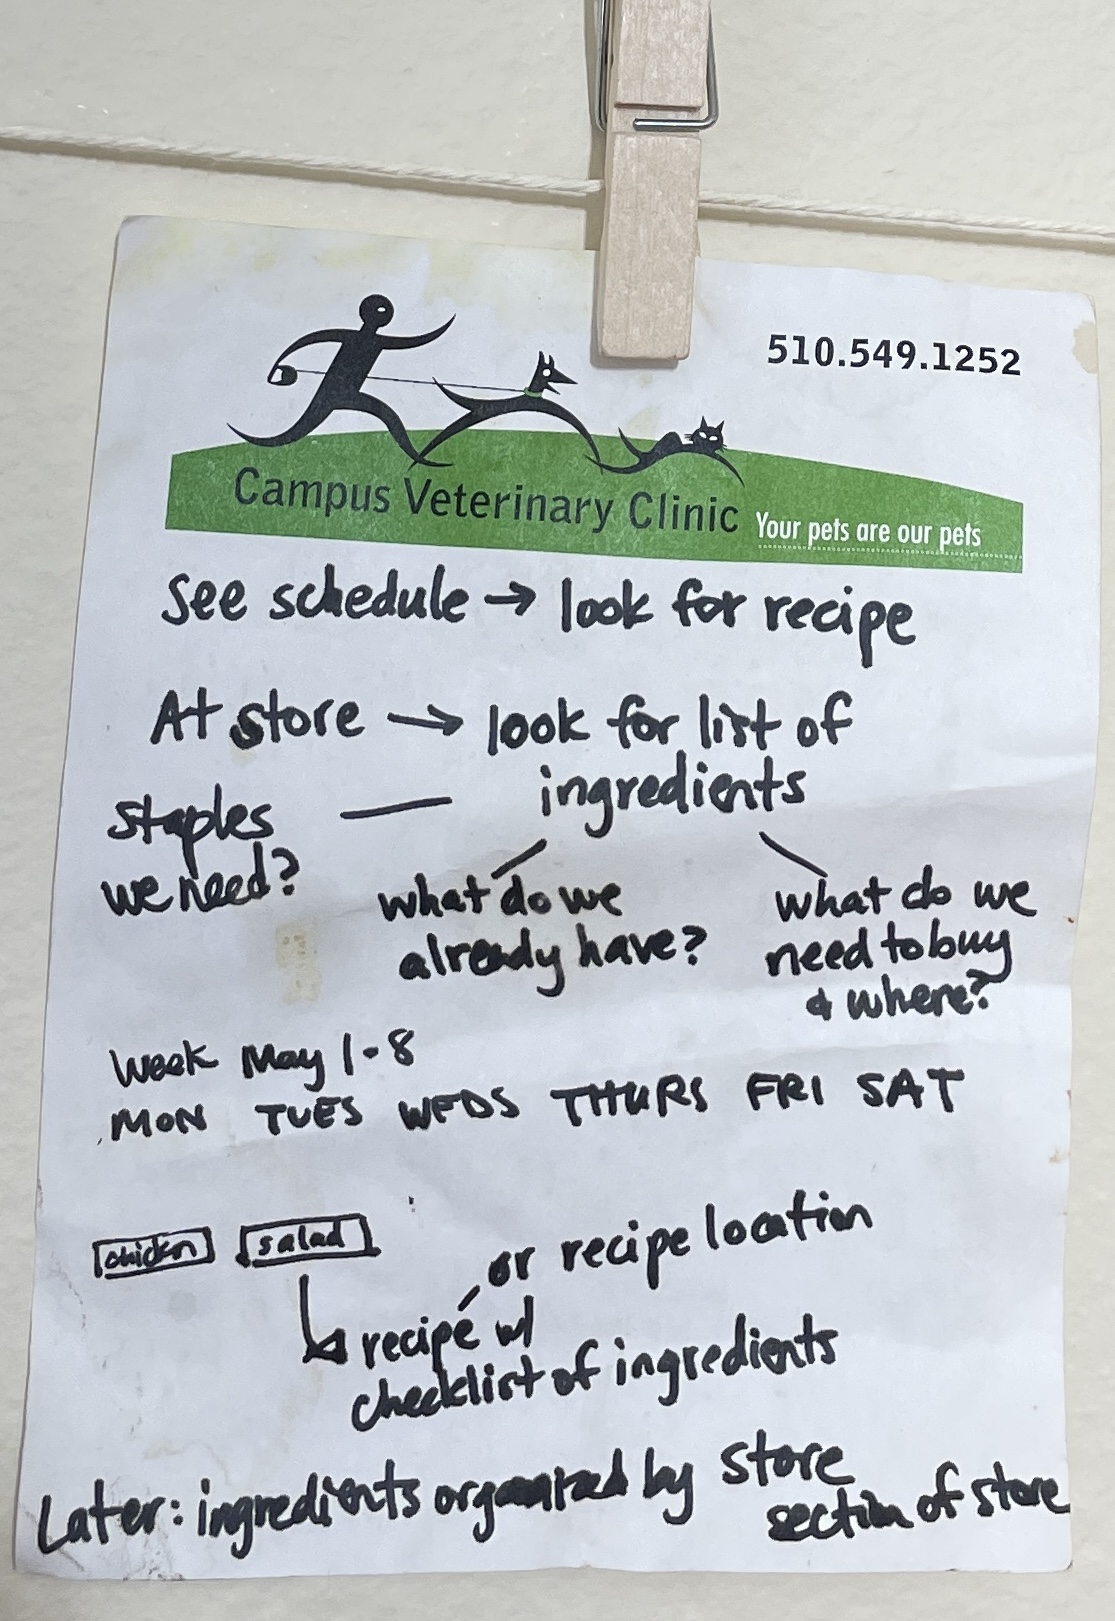 510.549.1252
Campus Veterinary Clinic Your pets are our pets
See schedule → look for recipe
At store → look for list of
ingredients
staples
we need?
what do we
already have?
what do we
need to buy
& where?
Week May 1-8
MON TUES WEDS THURS FRI SAT
chicken salad
or recipe location
recipe w/
checklist of ingredients
Later: ingredients organized by store
section of store